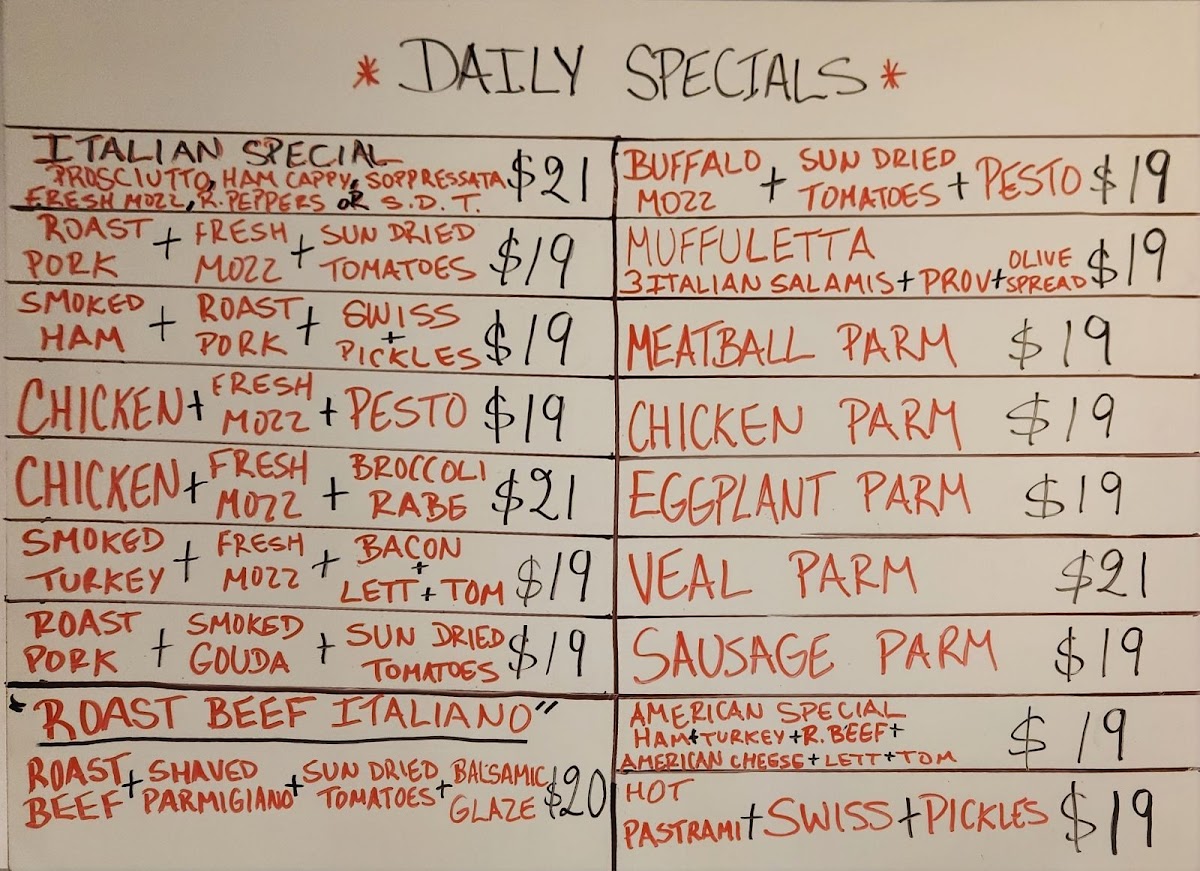 * DAILY SPECIALS *
ITALIAN SPECIAL
PROSCIUTTO, HAM CAPPY, SOPPRESSATA
FRESH MOZZ, R. PEPPERS OR S.D.T. $21
ROAST PORK + FRESH MOZZ + SUN DRIED TOMATOES $19
SMOKED HAM + ROAST PORK + SWISS + PICKLES $19
CHICKEN + FRESH MOZZ + PESTO $19
CHICKEN + FRESH MOZZ + BROCCOLI RABE $21
SMOKED TURKEY + FRESH MOZZ + BACON + LETT + TOM $19
ROAST PORK + SMOKED GOUDA + SUN DRIED TOMATOES $19
"ROAST BEEF ITALIANO"
ROAST BEEF + SHAVED PARMIGIANO + SUN DRIED TOMATOES + BALSAMIC GLAZE $20
BUFFALO MOZZ + SUN DRIED TOMATOES + PESTO $19
MUFFULETTA
3 ITALIAN SALAMIS + PROV + OLIVE SPREAD $19
MEATBALL PARM $19
CHICKEN PARM $19
EGGPLANT PARM $19
VEAL PARM $21
SAUSAGE PARM $19
AMERICAN SPECIAL
HAM + TURKEY + R. BEEF +
AMERICAN CHEESE + LETT + TOM $19
HOT PASTRAMI + SWISS + PICKLES $19